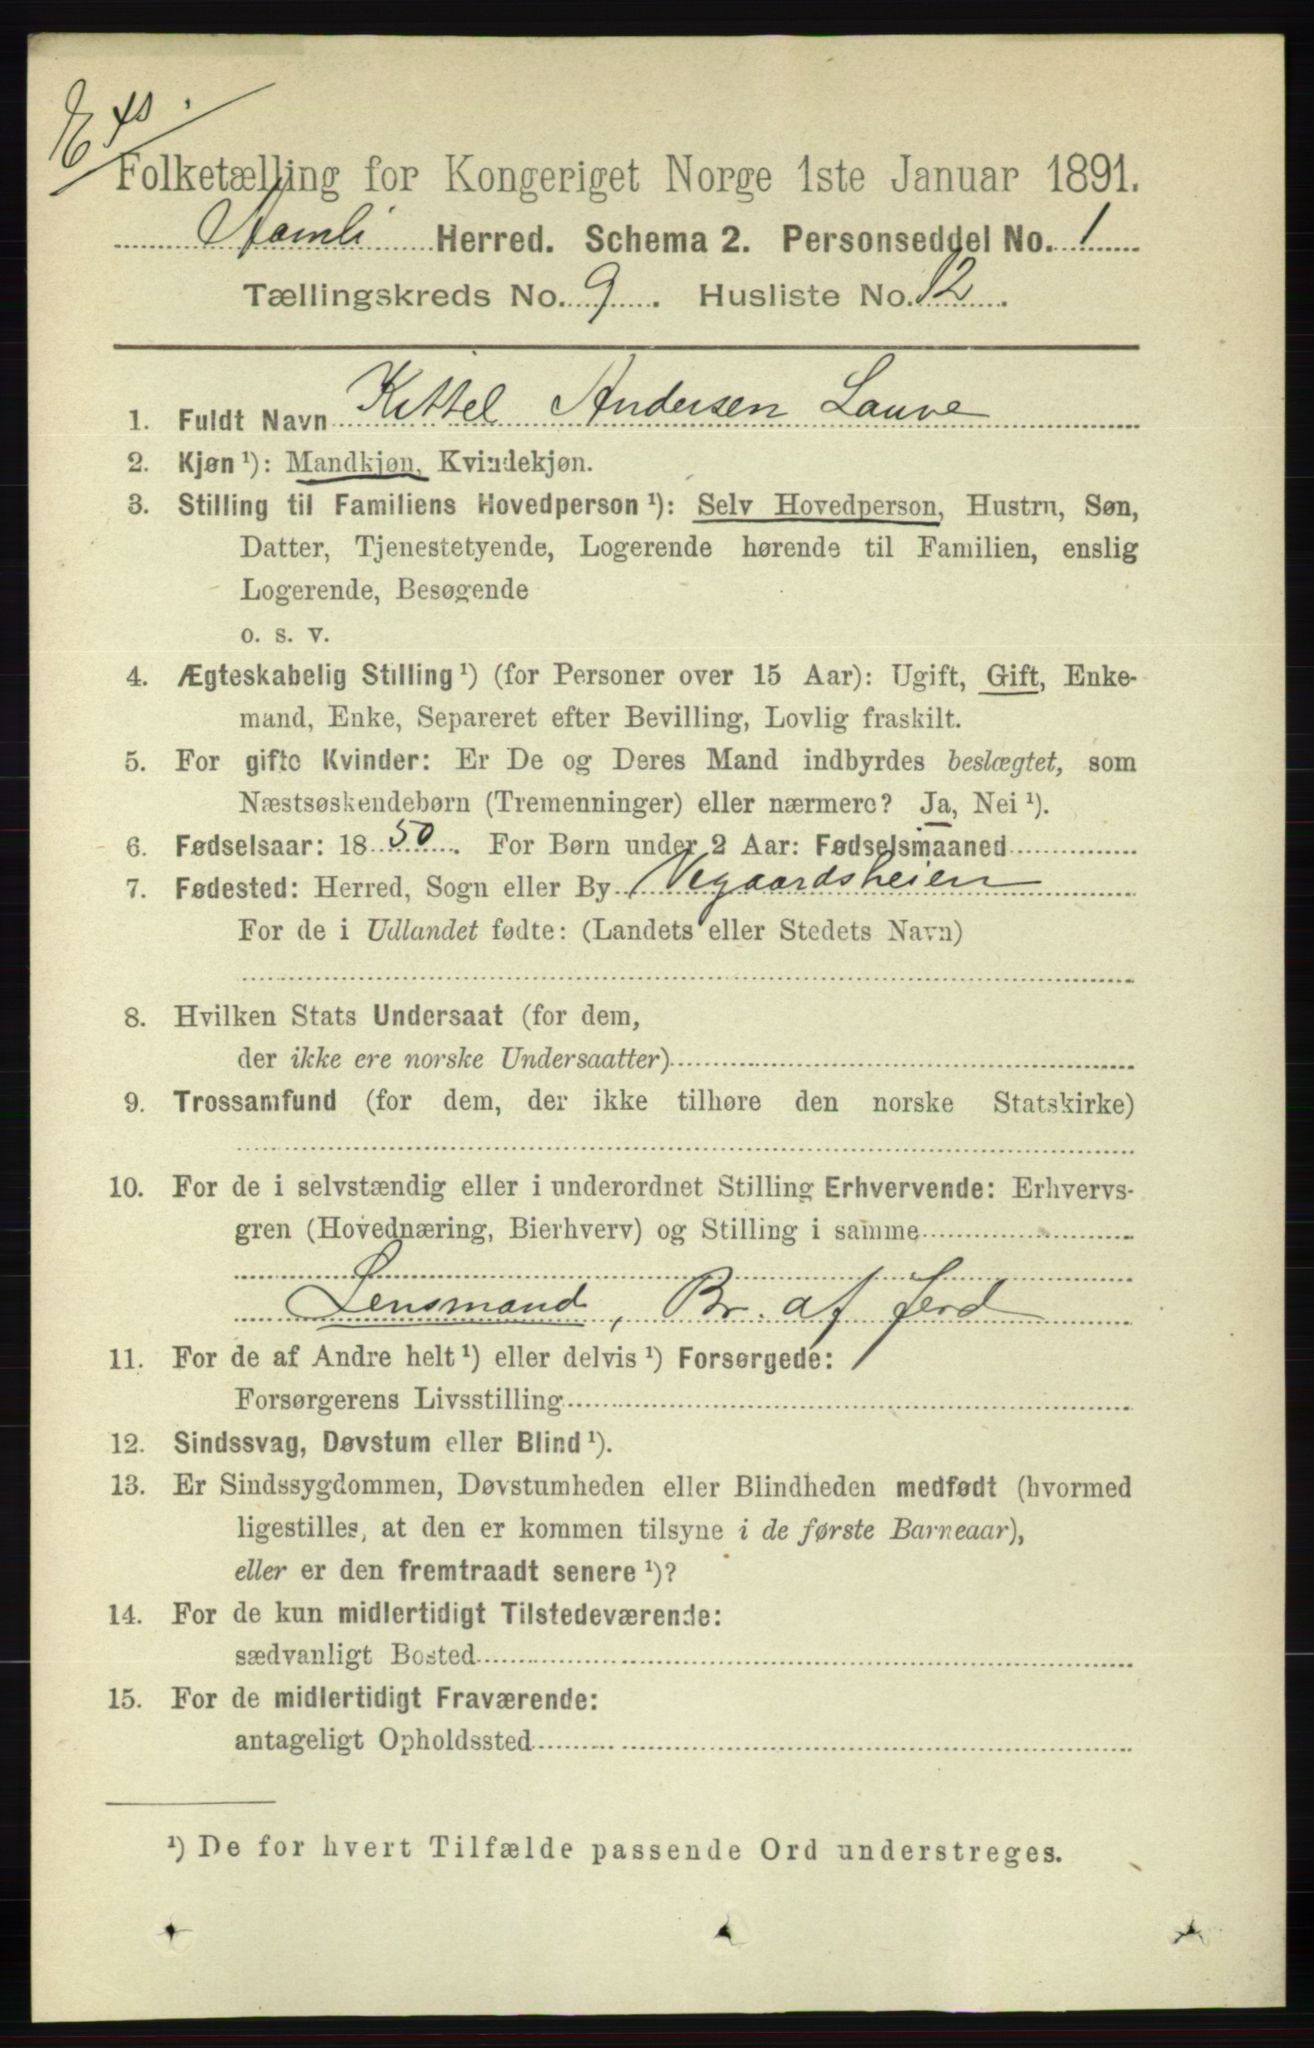 Exs.
Folketælling for Kongeriget Norge 1ste Januar 1891.
Aamli Herred. Schema 2. Personseddel No. 1
Tællingskreds No. 9. Husliste No. 12.
1. Fuldt Navn Kittel Andersen Lauve
2. Kjøn ¹): Mandkjøn, Kvindekjøn.
3. Stilling til Familiens Hovedperson ¹): Selv Hovedperson, Hustru, Søn,
Datter, Tjenestetyende, Logerende hørende til Familien, enslig
Logerende, Besøgende
o. s. v.
4. Ægteskabelig Stilling ¹) (for Personer over 15 Aar): Ugift, Gift, Enke-
mand, Enke, Separeret efter Bevilling, Lovlig fraskilt.
5. For gifte Kvinder: Er De og Deres Mand indbyrdes beslægtet, som
Næstsøskendebørn (Tremenninger) eller nærmere? Ja, Nei ¹).
6. Fødselsaar: 1850. For Børn under 2 Aar: Fødselsmaaned
7. Fødested: Herred, Sogn eller By Vegaardsheien
For de i Udlandet fødte: (Landets eller Stedets Navn)
8. Hvilken Stats Undersaat (for dem,
der ikke ere norske Undersaatter)
9. Trossamfund (for dem, der ikke tilhøre den norske Statskirke)
10. For de i selvstændig eller i underordnet Stilling Erhvervende: Erhvervs-
gren (Hovednæring, Bierhverv) og Stilling i samme
Lensmand, Br. af Jord
11. For de af Andre helt ¹) eller delvis ¹) Forsørgede:
Forsørgerens Livsstilling
12. Sindssvag, Døvstum eller Blind ¹).
13. Er Sindssygdommen, Døvstumheden eller Blindheden medfødt (hvormed
ligestilles, at den er kommen tilsyne i de første Barneaar),
eller er den fremtraadt senere ¹)?
14. For de kun midlertidigt Tilstedeværende:
sædvanligt Bosted
15. For de midlertidigt Fraværende:
antageligt Opholdssted
¹) De for hvert Tilfælde passende Ord understreges.